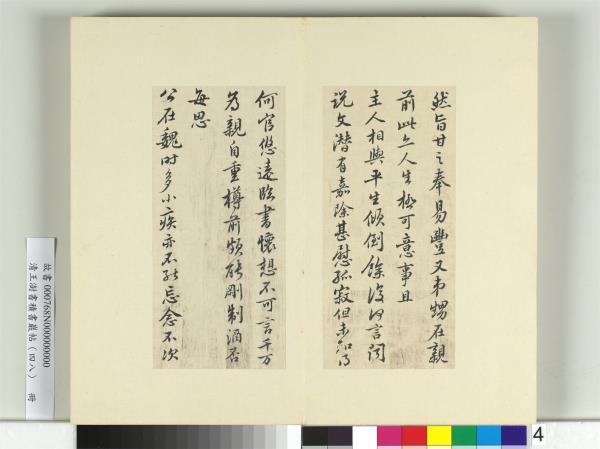 然旨甘之奉易豐又弟甥在親
前此亦人生極可意事且
主人相與平生傾倒餘復何言聞
說文潛有嘉除甚慰孤寂但未知得
何官悠遠臨書懷想不可言千万
為親自重樽前頻能剛制酒否
每思
公在魏時多小疾亦不能忘念不次
故書 000768N000000000
清王澍書積書巖帖(四八) 冊
4